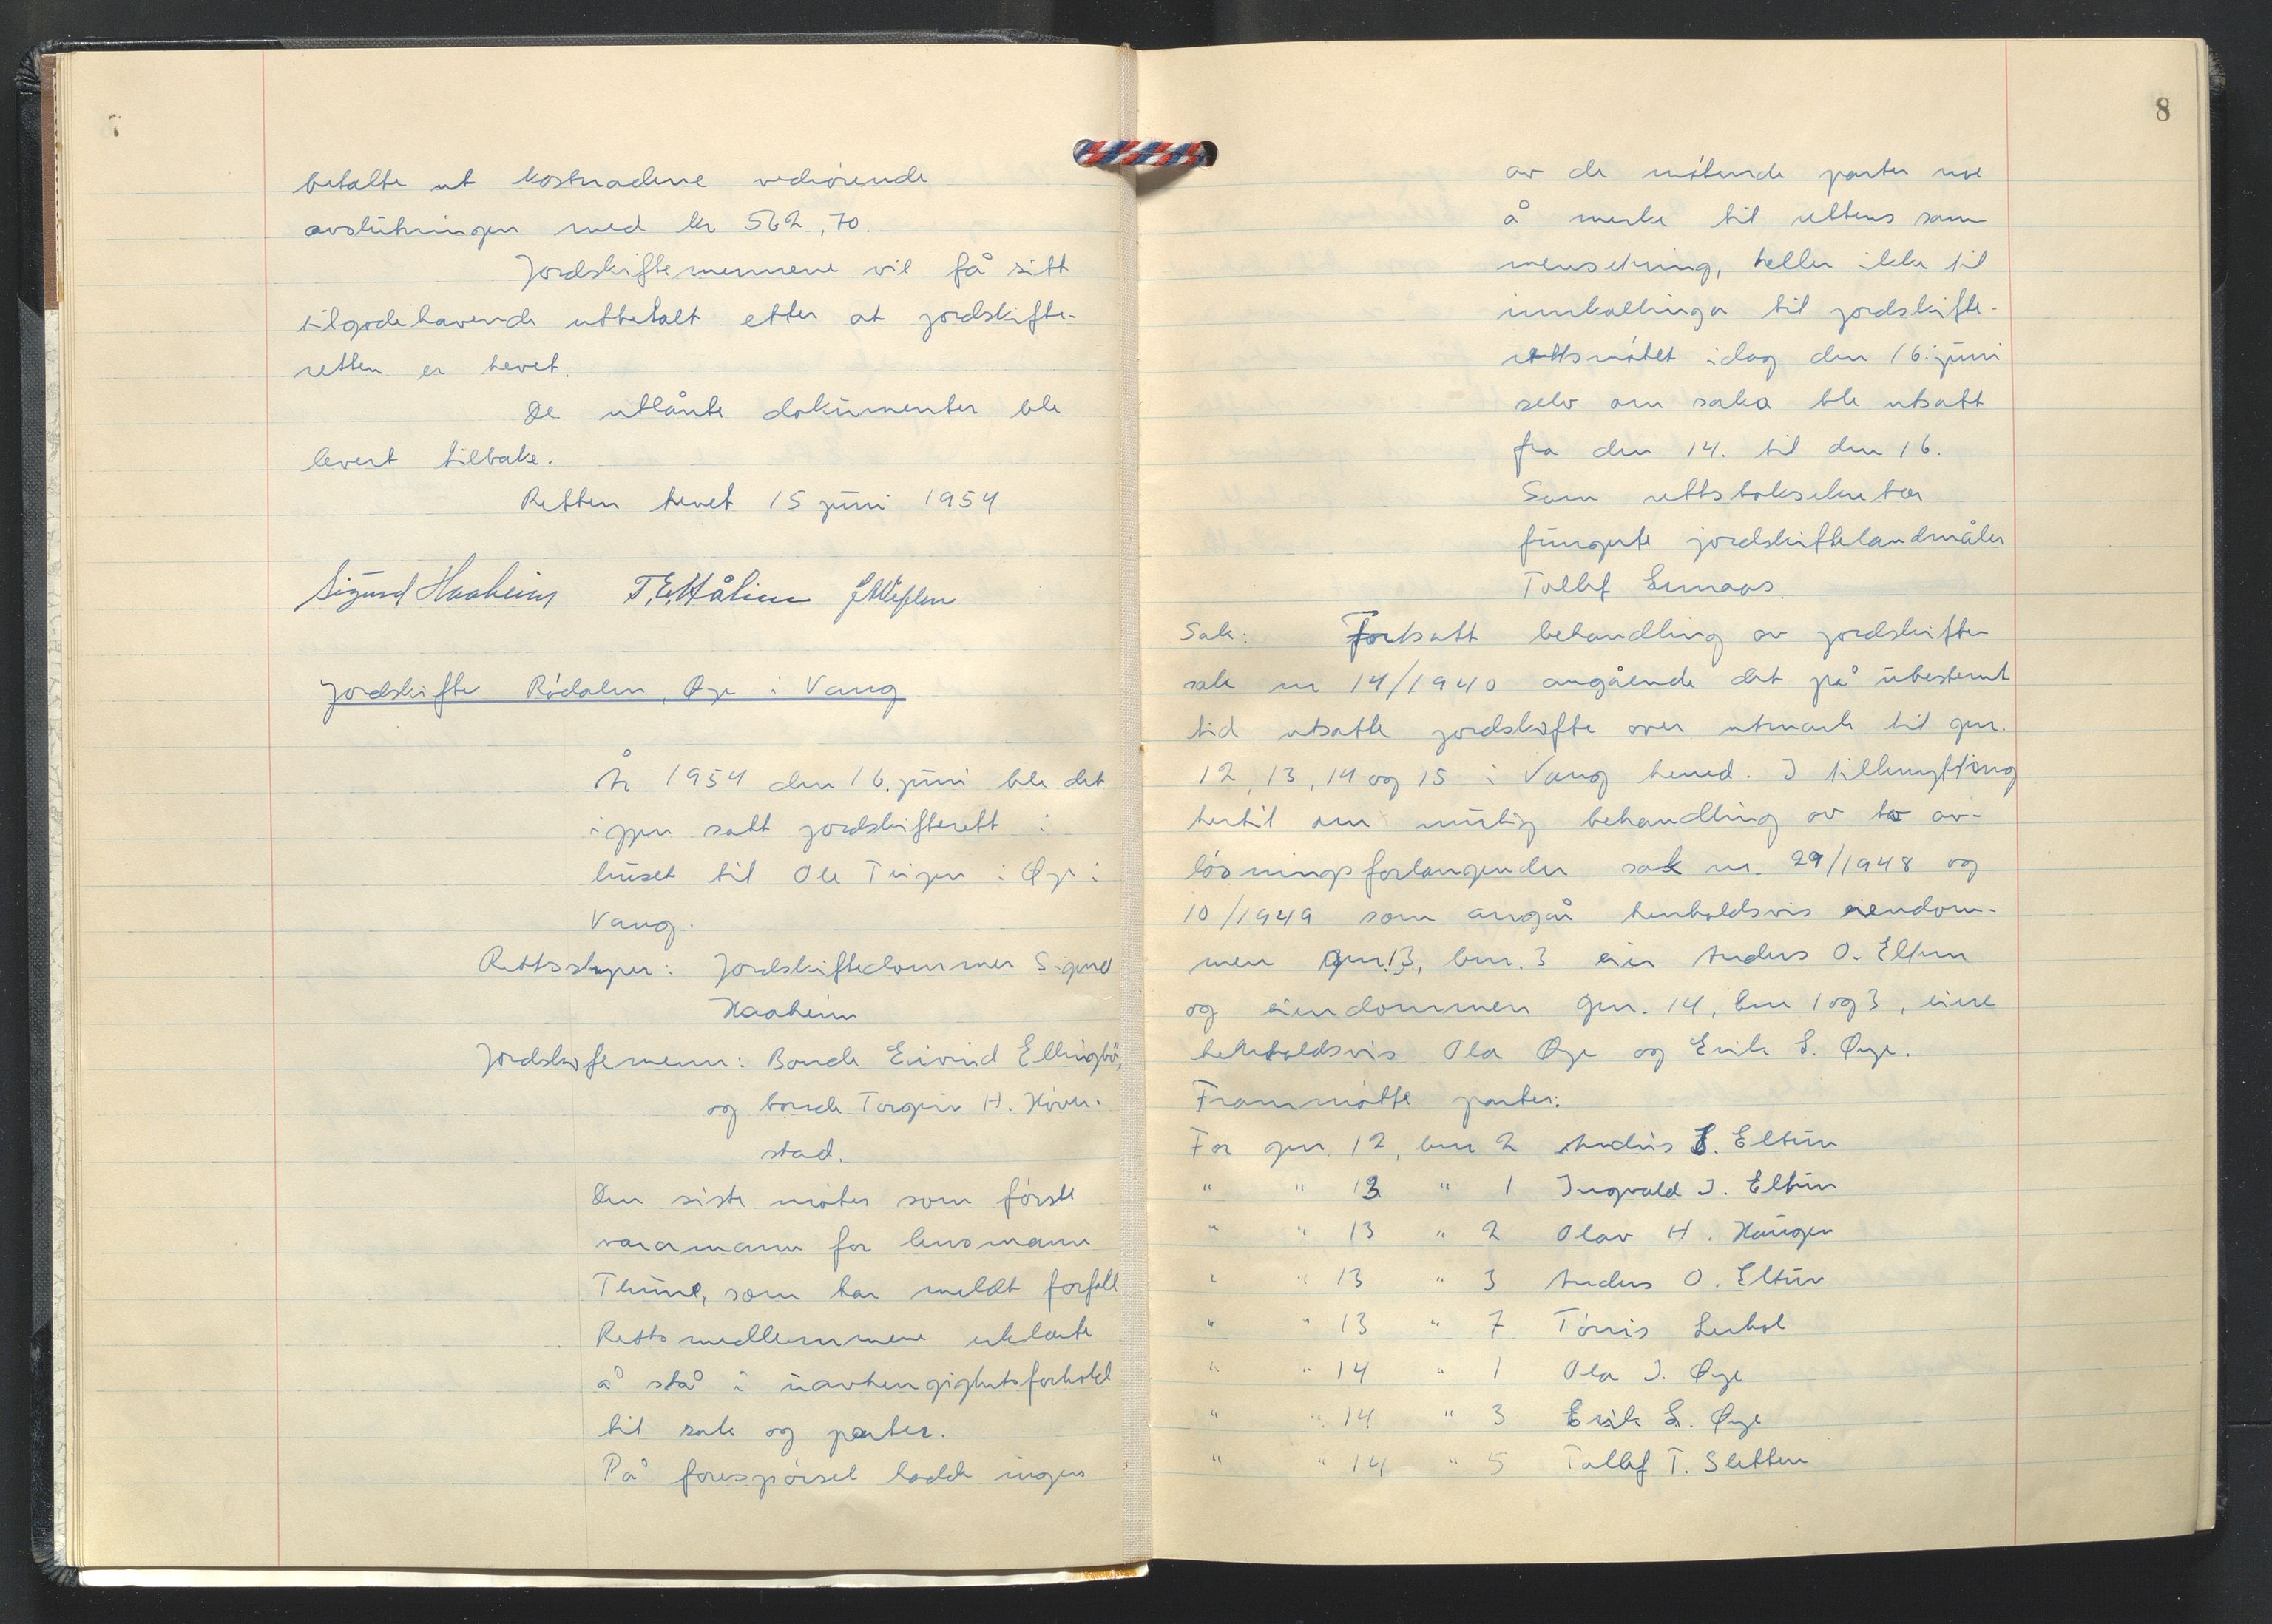 betalte ut kostnadene vedrørende
avslutningen med kr 562,70.
Jordskiftemennene vil få sitt
tilgodehavende utbetalt etter at jordskifte-
retten er hevet.
De utlånte dokumenter ble
levert tilbake.
Retten hevet 15 juni 1954
Sigurd Haaheim T. E. Hålien
Jordskifte Rødalen, Øye i Vang
År 1954 den 16. juni ble det
igjen satt jordskifterett i
huset til Ole Teigen i Øye i
Vang.
Rettsstyrer: Jordskiftedommer Sigurd
Haaheim
Jordskiftemenn: Bonde Eivind Ellingbø,
og bonde Torgeir H. Høver-
stad.
Den siste møter som første
varamann for lensmann
Thune, som har meldt forfall
Rettsmedlemmene erklærte
å stå i uavhengighetsforhold
til sak og parter.
På forespørsel hadde ingen
8
av de møtende parter noe
å merke til rettens sam-
mensetning, heller ikke til
innkallinga til jordskifte-
rettsmøtet idag den 16. juni
selv om saka ble utsatt
fra den 14. til den 16.
Som rettsboksekretær
fungerte jordskiftelandmåler
Tollef Lemaas.
Sak: Fortsatt behandling av jordskifte
sak nr 14/1940 angående det på ubestemt
tid utsatte jordskifte over utmark til gnr.
12, 13, 14 og 15 i Vang herred. I tilknytting
hertil om mulig behandling av to av-
løsningsforlangender sak nr. 29/1948 og
10/1949 som angår henholdsvis eiendom-
men gnr. 13, bnr. 3 eier Anders O. Eltun
og eiendommen gnr. 14, bnr 1 og 3, eiere
henholdsvis Ola Øye og Erik L. Øye.
Frammøtte parter:
For gnr. 12, bnr 2 Andris J. Eltun
" " 13 " 1 Ingvald J. Eltun
" " 13 " 2 Olav H. Haugen
" " 13 " 3 Anders O. Eltun
" " 13 " 7 Tørris Lerhol
" " 14 " 1 Ola J. Øye
" " 14 " 3 Erik L. Øye
" " 14 " 5 Tollef T. Sletten